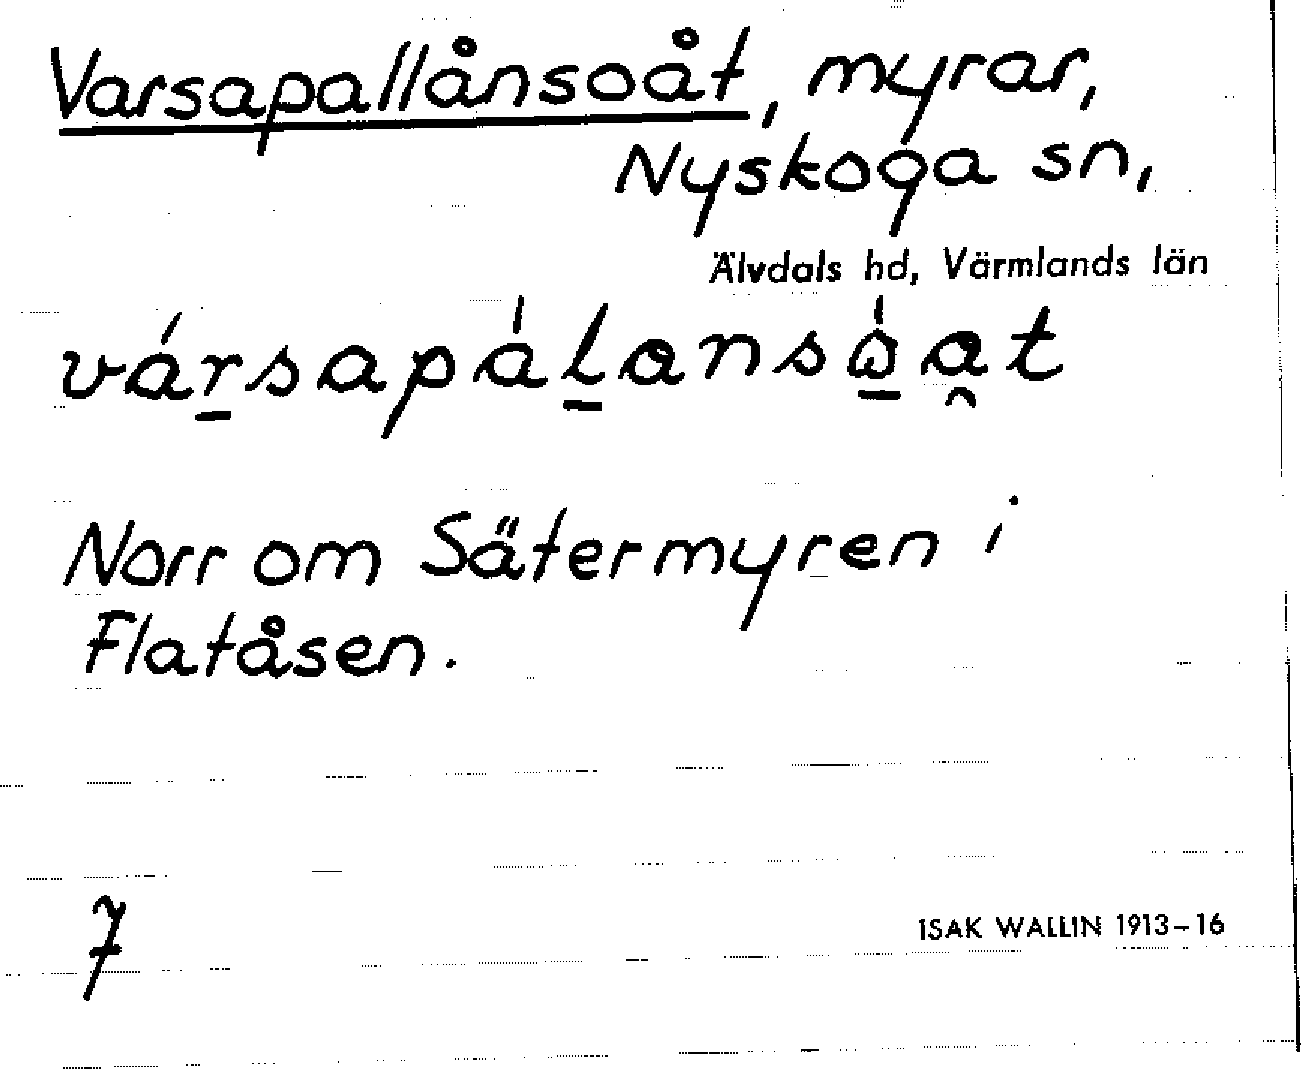 Varsapallånsoåt, myrar,
Nyskoga sn,
Älvdals hd, Värmlands län
Norr om Sätermyren i
Flatåsen.
7
ISAK WALLIN 1913-16